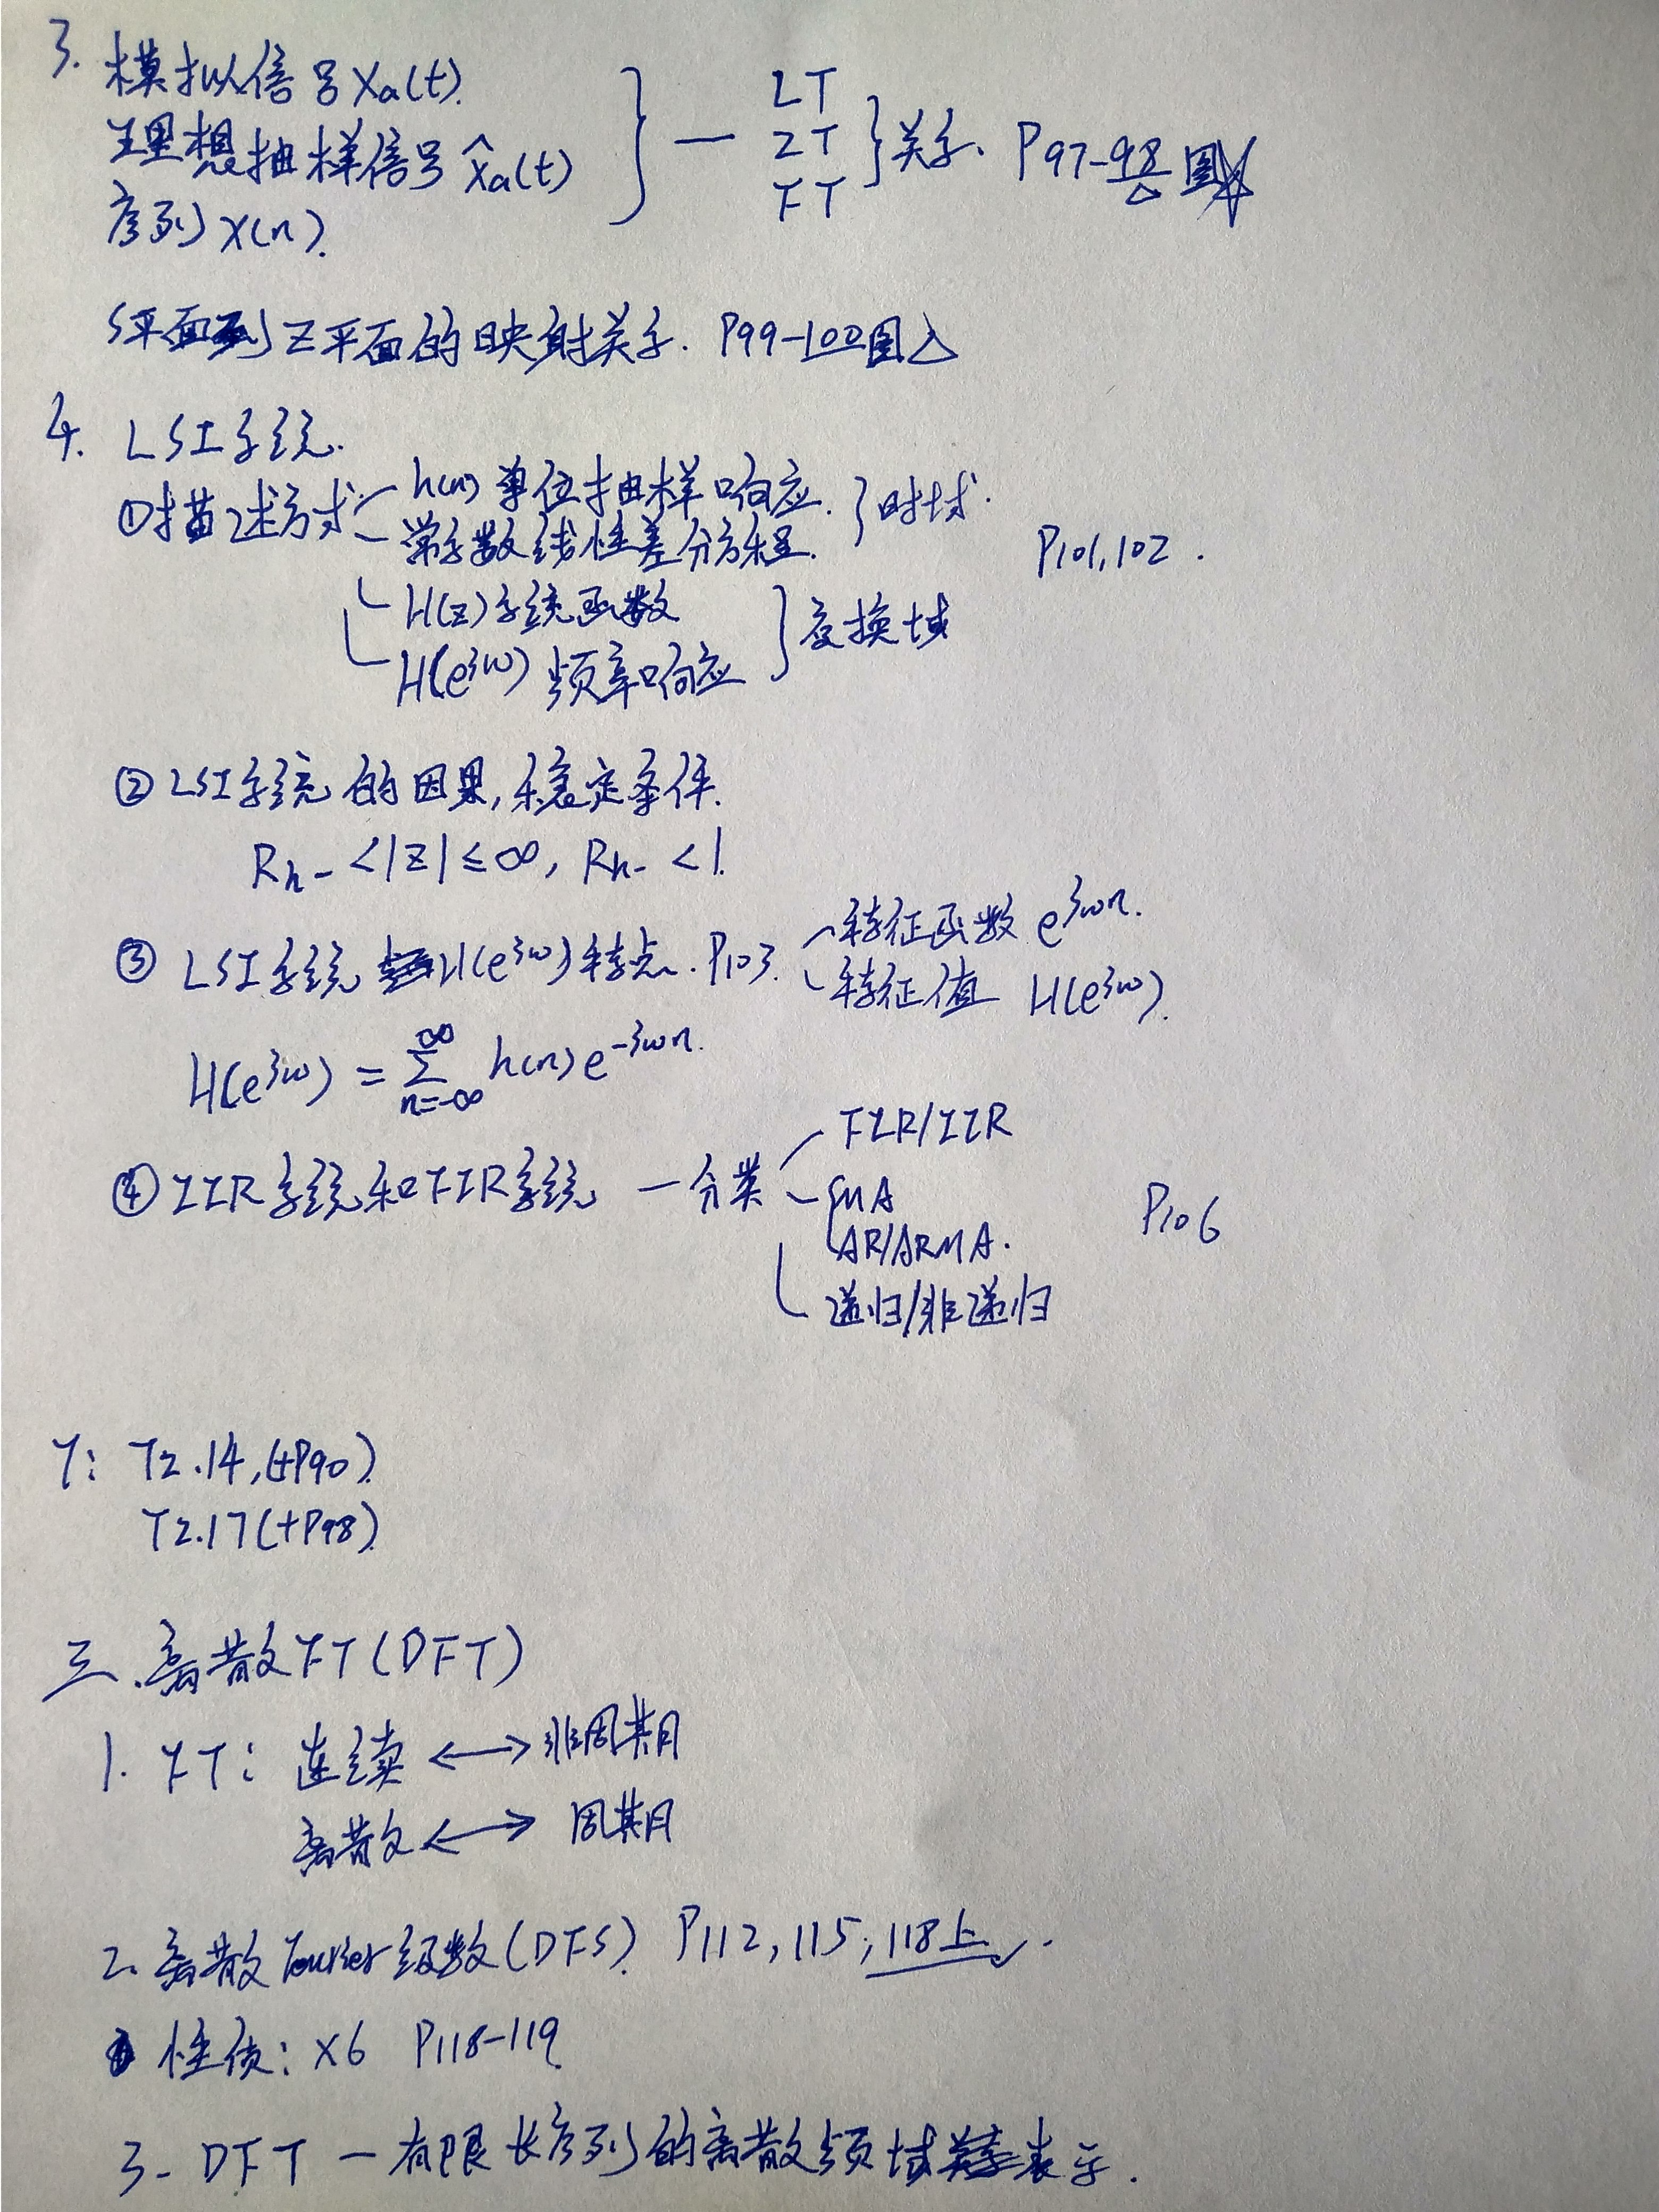 3. 模拟信号 Xa(t).
理想抽样信号 x̂a(t) } — LT ZT FT } 关系. P97-98 图
序列 x(n).
S平面到Z平面的映射关系. P99-100图△
4. LSI系统.
①描述方式 h(n) 单位抽样响应. } 时域.
常系数线性差分方程. P101,102.
H(z)系统函数 } 变换域
H(e^jω) 频率响应
②LSI系统的因果,稳定条件.
Rh- <|z|≤∞, Rh- <1.
③ LSI系统 H(e^jω)特点. P103. 特征函数 e^jωn.
特征值 H(e^jω).
H(e^jω) = ∑ n=-∞ ∞ h(n)e^-jωn.
④IIR系统和FIR系统 — 分类 FIR/IIR
MA
AR/ARMA. P106
递归/非递归
T2.14,(+P90).
T2.17(+P98).
三.离散FT(DFT)
1. FT: 连续 ⟷ 非周期
离散 ⟷ 周期
2. 离散Fourier级数(DFS). P112,115,118上.
性质: ×6 P118-119.
3. DFT — 有限长序列的离散频域表示.